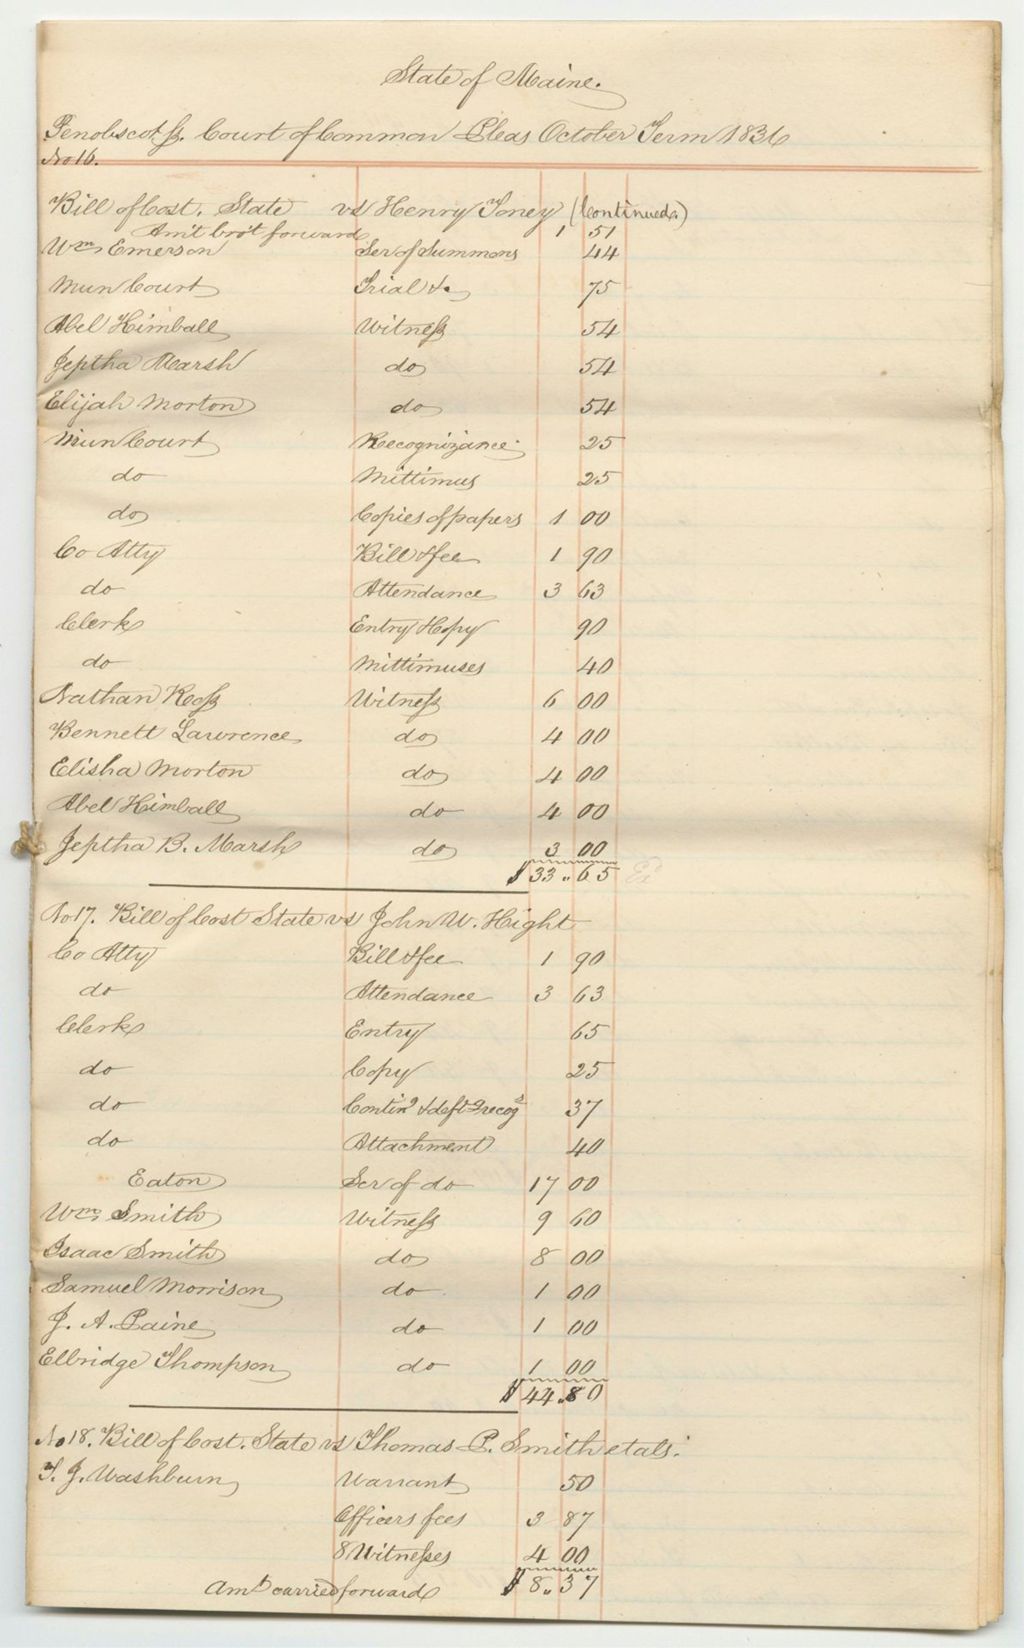 State of Maine.
Penobscot ss. Court of Common Pleas October Term 1836
No 16.
Bill of Cost. State vs Henry Toney (Continued.)
Amt bro't forward 1 51
Wm Emerson Ser of Summons 44
Mun Court Trial &c 75
Abel Kimball Witness 54
Jeptha Marsh do 54
Elijah Morton do 54
Mun Court Recognizance 25
do Mittimus 25
do Copies of papers 1 00
Co Atty Bill & fee 1 90
do Attendance 3 63
Clerk Entry & Copy 90
do Mittimuses 40
Nathan Ross Witness 6 00
Bennett Lawrence do 4 00
Elisha Morton do 4 00
Abel Kimball do 4 00
Jeptha B. Marsh do 3 00
$ 33.. 65
No 17. Bill of Cost State vs John W. Hight
Co Atty Bill & fee 1 90
do Attendance 3 63
Clerk Entry 65
do Copy 25
do Contind & deft recogd 37
do Attachment 40
Eaton Ser of do 17 00
Wm Smith Witness 9 60
Isaac Smith do 8 00
Samuel Morrison do 1 00
J. A. Paine do 1 00
Elbridge Thompson do 1 00
$ 44..80
No 18. Bill of Cost. State vs Thomas P. Smith et als.
T. J. Washburn Warrant 50
Officers fees 3 87
8 Witnesses 4 00
Amt carried forward $ 8.. 37